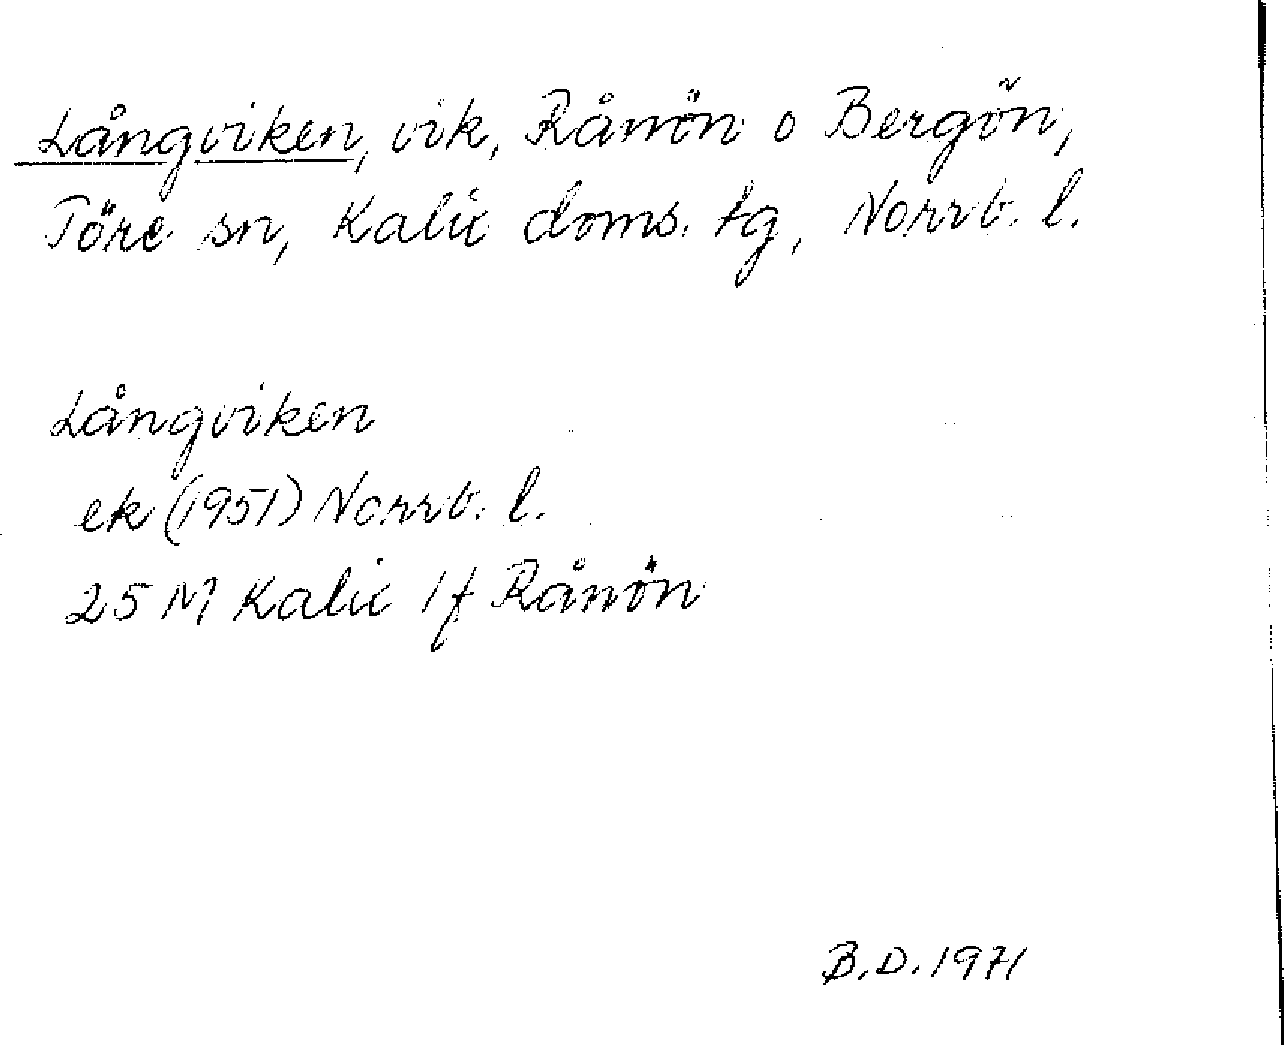 Långviken, vik, Rånön o Bergön,
Töre sn, Kalix doms. tg, Norrb. l.
Långviken
ek (1951) Norrb. l.
25 M Kalix 1f Rånön
B.D. 1971